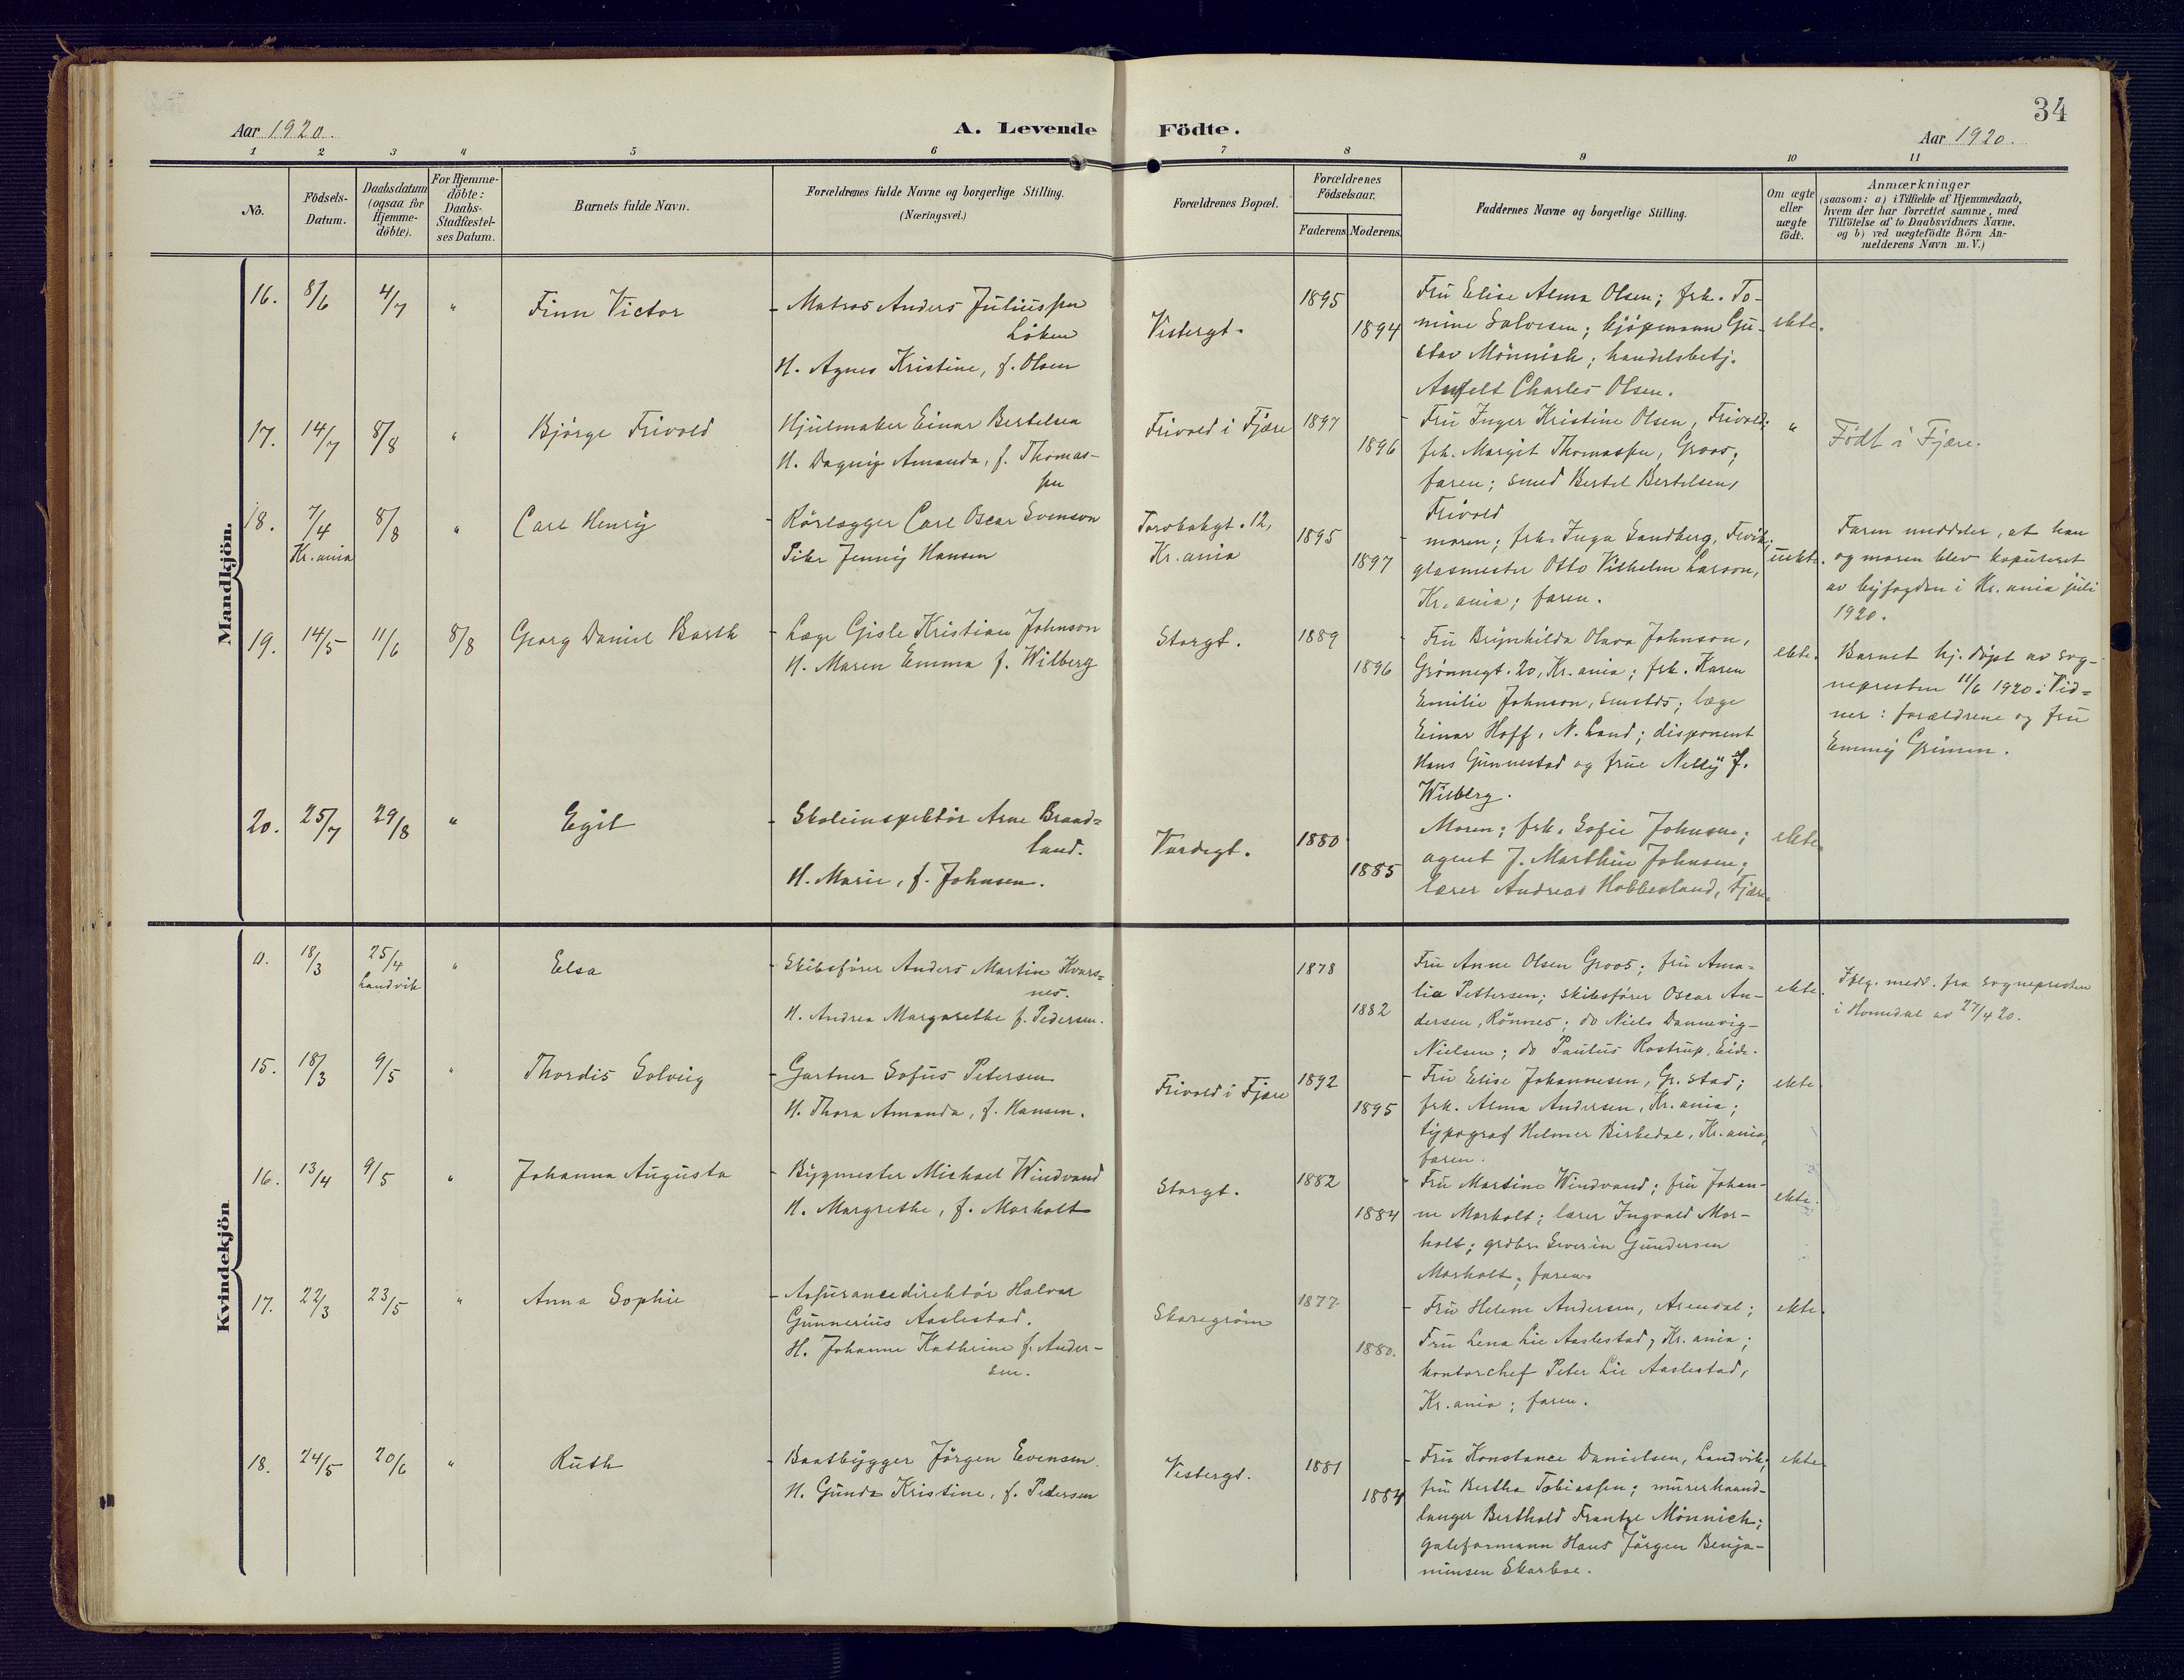 34
Aar 1920.
A. Levende Födte.
Aar 1920.
1 2 3 4 5 6 7 8 9 10 11
No.
Födsels-
Datum.
Daabsdatum
(ogsaa for
Hjemme-
döbte).
For Hjemme-
döbte:
Daabs-
Stadfæstel-
ses Datum.
Barnets fulde Navn.
Forældrenes fulde Navne og borgerlige Stilling.
(Næringsvei.)
Forældrenes Bopæl.
Forældrenes
Födselsaar.
Faderens. Moderens.
Faddernes Navne og borgerlige Stilling.
Om ægte
eller
uægte
födt.
Anmærkninger
(saasom: a) i Tilfælde af Hjemmedaab,
hvem der har forrettet samme, med
Tilföielse af to Daabsvidners Navne,
og b) ved uægtefödte Börn An-
melderens Navn m. V.)
Mandkjön.
16. 8/6 4/7 " Finn Victor
- Matros Anders Juliussen
Löken
H. Agnes Kristine, f. Olsen
Vestergt.
1895
1894
Fru Elise Alma Olsen; frk. To-
mine Salvesen; kjöpmann Gu-
stav Mönnich; handelsbetj.
Anfelt Charles Olsen.
ekte.
17. 14/7 8/8 " Björge Frivold
Hjulmaker Einar Bertelsen
H. Dagny Amanda, f. Thomas-
sen
Frivold i Fjære
1897
1896
- Fru Inger Kristine Olsen, Frivold;
frk. Margit Thomassen, Groos;
faren; smed Bertel Bertelsen,
Frivold
"
Födt i Fjære.
18. 7/4 8/8 " Carl Henry
Kr.ania
- Rörlægger Carl Oscar Svenson
Pike Jenny Hansen
Torvbakgt. 12,
Kr.ania
1895
1897
moren; frk. Inga Sandberg,
glasmester Otto Vilhelm Larson,
Kr.ania; faren.
uekte.
Faren meddeler, at han
og moren blev kopuleret
av byfogden i Kr.ania juli
1920.
19. 14/5 11/6 8/8 Georg Daniel Barth
- Læge Gisle Kristian Johnson
H. Maren Emma f. Wilberg
Storgt.
1889
1896
- Fru Brynhilda Olava Johnson,
Grönnegt. 20, Kr.ania; frk. Karen
Emilie Johnson, smstds; læge
Einar Hoff, N. Land; disponent
Hans Gunnestad og frue Nelly F.
Wilberg.
ekte.
Barnet hj. döpt av sog-
nepresten 11/6 1920. Vid-
ner: forældrene og fru
Emmy Grimm.
20. 25/7 29/8 " Egil
- Skoleinspektör Arne Braad-
land.
H. Marie, f. Johnsen.
Vardegt.
1880
1885
Moren; frk. Sofie Johnsen;
agent J. Marthin Johnsen;
lærer Andreas Hobbesland, Fjære.
ekte.
Kvindekjön
0. 18/3 25/4 " Elsa
Landvik
- Skibsförer Anders Martin Kvars-
nes.
H. Andrea Margarethe f. Pedersen.
1878
1882
Fru Anne Olsen Groos; fru Ama-
lia Pettersen; skibsförer Oscar An-
dersen, Rönnes; do Niels Dannevig-
Nielsen; do Paulus Rostrup, Eide.
ekte.
Iflg. medd. fra sognepresten
i Homedal av 27/4 20.
15. 18/3 9/5 " Thordis Solveig
- Gartner Sofus Petersen
H. Thora Amanda, f. Hansen.
Frivold i Fjære
1892
1895
- Fru Elise Johannesen, Gr.stad;
frk. Alma Andersen, Kr.ania;
typograf Helmer Birkedal, Kr.ania,
faren.
ekte.
16. 13/4 9/5 " Johanna Augusta
- Bygmester Michael Windvand
H. Margrethe, f. Morholt
Storgt.
1882
1884
- Fru Martine Windvand; fru Johan-
ne Morholt; lærer Ingvald Mor-
holt; grdbr. Severin Gundersen
Morholt; faren.
ekte.
17. 22/3 23/5 " Anna Sophie
- Assurancedirektör Halvar
Gunnerius Aaslestad.
H. Johanne Kathrine f. Ander-
sen.
Skaregröm
1877
1880.
- Fru Helene Andersen, Arendal;
Fru Lena Lie Aaslestad, Kr.ania;
kontorchef Peter Lie Aaslestad,
Kr.ania; faren.
ekte.
18. 24/5 20/6 " Ruth
- Baatbygger Jörgen Evensen.
H. Gunda Kristine, f. Pedersen
Vestergt.
1881
1884
- Fru Konstance Danielsen, Landvik;
fru Bertha Tobiassen; murerhaand-
langer Berthold Frantze Mönnich;
galeformann Hans Jörgen Benja-
minsen Skarboe.
ekte.